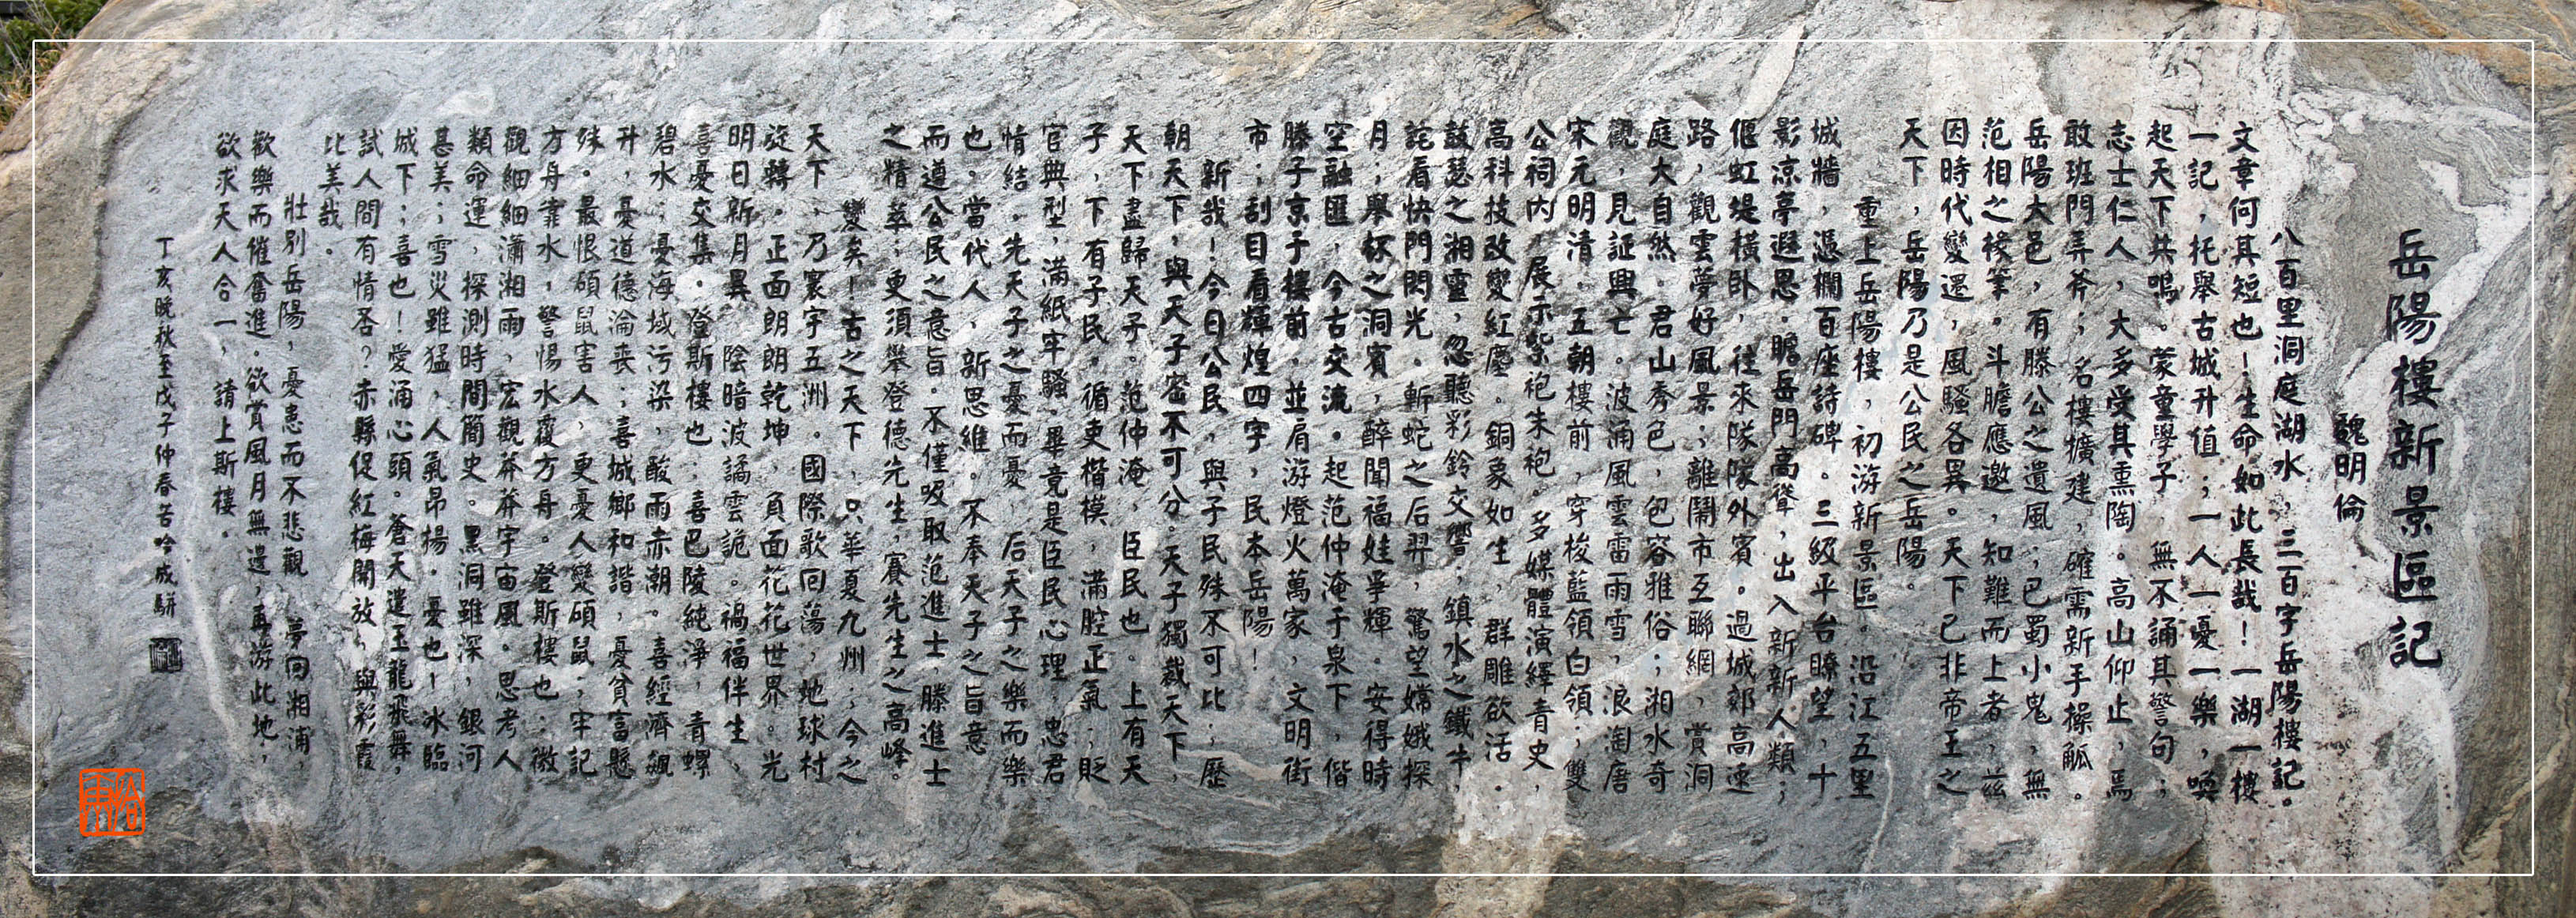 岳陽樓新景區記
魏明倫
八百里洞庭湖水，三百字岳陽樓記。
文章何其短也！生命如此長哉！一湖一樓
一記，托舉古城升值；一人一憂一樂，喚
起天下共鳴。蒙童學子，無不誦其警句；
志士仁人，大多受其熏陶。高山仰止，焉
敢班門弄斧；名樓擴建，確需新手操觚。
岳陽大邑，有滕公之遺風；巴蜀小鬼，無
范相之椽筆。斗膽應邀，知難而上者，茲
因時代變遷，風騷各異。天下已非帝王之
天下，岳陽乃是公民之岳陽。
重上岳陽樓，初游新景區。沿江五里
城牆，憑欄百座詩碑。三級平台瞭望，十
影涼亭遐思。瞻岳門高聳，出入新新人類；
偃虹堤橫臥，往來隊隊外賓。過城郊高速
路，觀雲夢好風景；離鬧市互聯網，賞洞
庭大自然。君山秀色，包容雅俗；湘水奇
觀，見証興亡。波涌風雲雷雨雪，浪淘唐
宋元明清。五朝樓前，穿梭藍領白領；雙
公祠內，展示紫袍朱袍。多媒體演繹青史，
高科技改變紅塵。銅象如生，群雕欲活。
鼓瑟之湘靈，忽聽彩鈴交響；鎮水之鐵牛，
詫看快門閃光。斬蛇之后羿，驚望嫦娥探
月；舉杯之洞賓，醉聞福娃爭輝。安得時
空融匯，今古交流。起范仲淹于泉下，偕
滕子京于樓前。並肩游燈火萬家，文明街
市；刮目看輝煌四字，民本岳陽！
新哉！今日公民，與子民殊不可比；歷
朝天下，與天子密不可分。天子獨裁天下，
天下盡歸天子。范仲淹，臣民也。上有天
子，下有子民。循吏楷模，滿腔正氣；貶
官典型，滿紙牢騷。畢竟是臣民心理，忠君
情結。先天子之憂而憂，后天子之樂而樂
也。當代人，新思維。不奉天子之旨意，
而遵公民之意旨。不僅吸取范進士、滕進士
之精萃；更須攀登德先生、賽先生之高峰。
變矣！古之天下，只華夏九州；今之
天下，乃寰宇五洲。國際歌回蕩，地球村
旋轉。正面朗朗乾坤，負面花花世界。光
明日新月異，陰暗波譎雲詭。禍福伴生，
喜憂交集。登斯樓也：喜巴陵純淨，青螺
碧水；憂海域污染，酸雨赤潮。喜經濟飆
升，憂道德淪喪；喜城鄉和諧，憂貧富懸
殊。最恨碩鼠害人，更憂人變碩鼠；牢記
方舟靠水，警惕水覆方舟。登斯樓也：微
觀細細瀟湘雨，宏觀莽莽宇宙風。思考人
類命運，探測時間簡史。黑洞雖深，銀河
甚美；雪災雖猛，人氣昂揚。憂也！冰臨
城下；喜也！愛涌心頭。蒼天遣玉龍飛舞，
試人間有情否？赤縣促紅梅開放，與彩霞
比美哉。
壯別岳陽，憂患而不悲觀；夢回湘浦，
歡樂而催奮進。欲賞風月無邊，再游此地；
欲求天人合一，請上斯樓。
丁亥晚秋至戊子仲春苦吟成駢